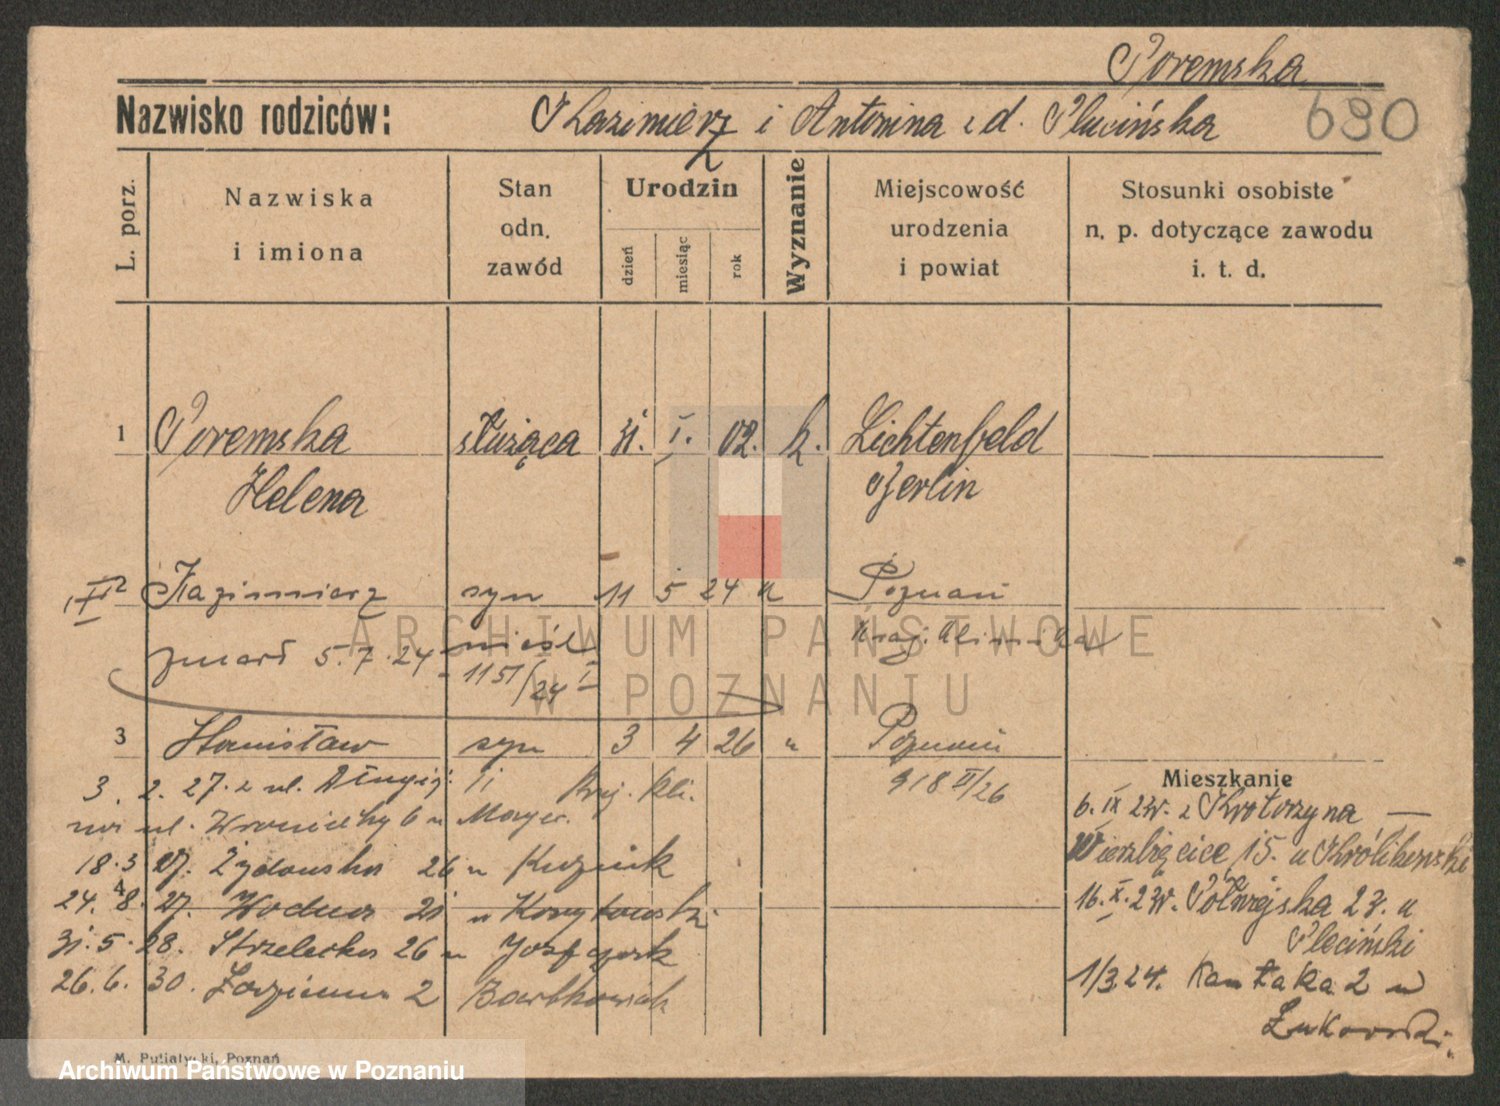 Poremska
Nazwisko rodziców: Kazimierz i Antonina z d. Plucińska 690
L. porz.
Nazwiska i imiona
Stan odn. zawód
Urodzin
dzień
miesiąc
rok
Wyznanie
Miejscowość urodzenia i powiat
Stosunki osobiste n. p. dotyczące zawodu i. t. d.
1 Poremska służąca 31. I. 02. k. Lichtenfeld
Helena Berlin
2 Kazimierz syn 11 5 24 k Poznań
zmarł 5.7.24 nieśl. Kraj. Klinika
1151/24 I
3 Stanisław syn 3 4 26 " Poznań
918 II/26
Kraj. Kli.
3. 2. 27. z ul. Długiej 11
na ul. Wroniecky 6 u Mayer.
18. 3 27. Żydowska 26 u Kuzniak
24. 8. 27. Wodna 21 u
31. 5. 28. Strzelecka 26 u Józefczak
26. 6. 30. 2 Bartkowiak
Mieszkanie
6. IX 23r. z Krotoszyna —
Wierzbięcice 15. u Królikowski
16. X. 23r. Półwiejska 23. u
Pleciński
1/3.24. Kantaka 2 u
Żukowski.
M. Putiatycki, Poznań
ARCHIWUM PAŃSTWOWE
W POZNANIU
Archiwum Państwowe w Poznaniu